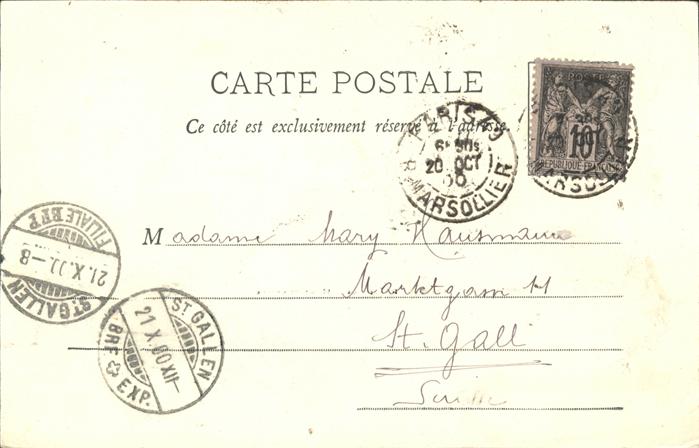 CARTE POSTALE
Ce côté est exclusivement réservé à l'adresse.
POSTES
10
REPUBLIQUE FRANCAISE
PARIS
20 OCT
00
R. MARSOLLIER
MARSOLLIER
Madame Mary Hausmann
Marktgasse 11
St. Gall
Suisse
ST. GALLEN
21.X.00.-8
FILIALE BRF.
ST. GALLEN
21 X.00 XII-
BRF. EXP.